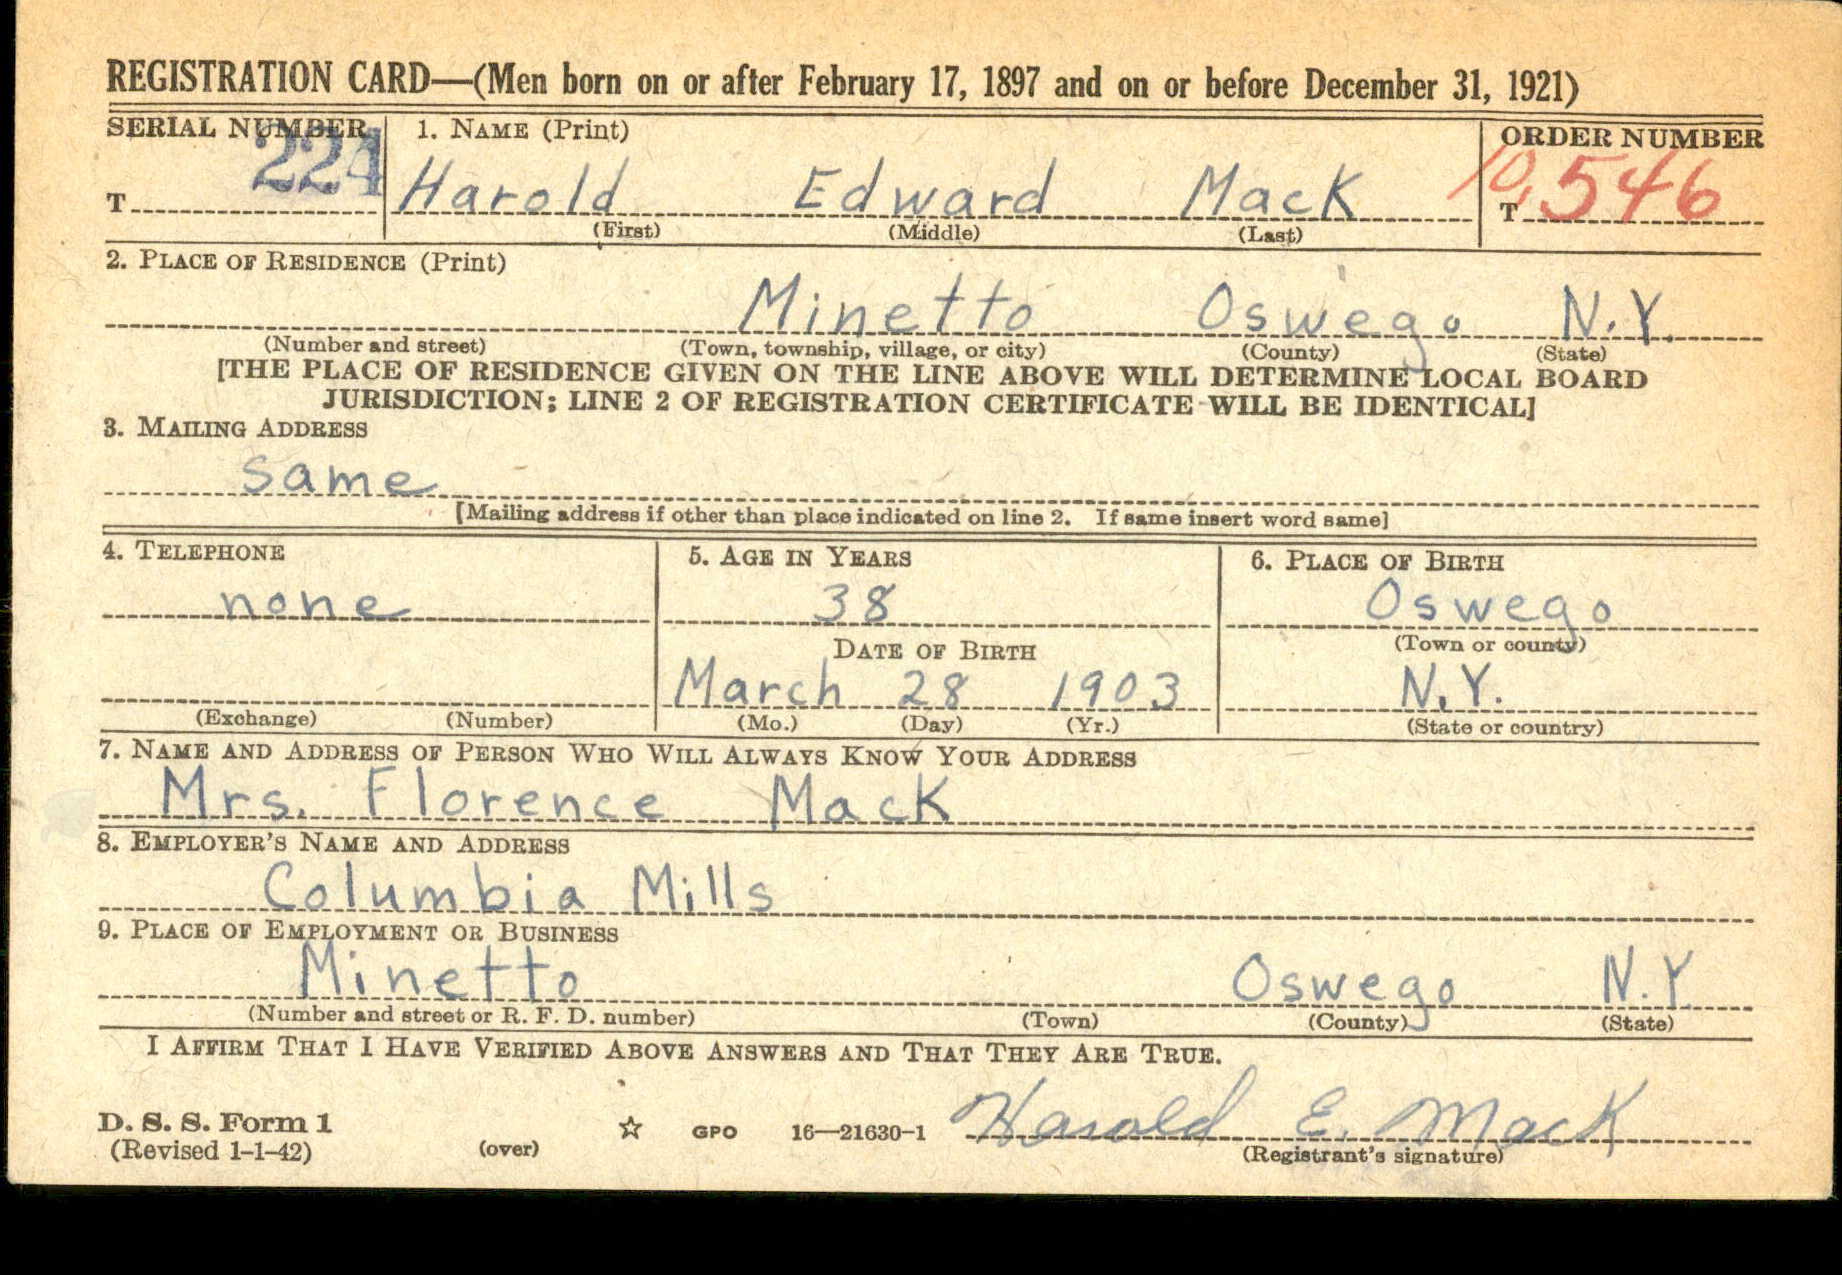 REGISTRATION CARD—(Men born on or after February 17, 1897 and on or before December 31, 1921)
SERIAL NUMBER 1. NAME (Print) ORDER NUMBER
T 224 Harold Edward Mack T 10,546
(First) (Middle) (Last)
2. PLACE OF RESIDENCE (Print)
Minetto Oswego N.Y.
(Number and street) (Town, township, village, or city) (County) (State)
[THE PLACE OF RESIDENCE GIVEN ON THE LINE ABOVE WILL DETERMINE LOCAL BOARD
JURISDICTION; LINE 2 OF REGISTRATION CERTIFICATE WILL BE IDENTICAL]
3. MAILING ADDRESS
same
[Mailing address if other than place indicated on line 2. If same insert word same]
4. TELEPHONE 5. AGE IN YEARS 6. PLACE OF BIRTH
none 38 Oswego
DATE OF BIRTH (Town or county)
March 28 1903 N.Y.
(Exchange) (Number) (Mo.) (Day) (Yr.) (State or country)
7. NAME AND ADDRESS OF PERSON WHO WILL ALWAYS KNOW YOUR ADDRESS
Mrs. Florence Mack
8. EMPLOYER'S NAME AND ADDRESS
Columbia Mills
9. PLACE OF EMPLOYMENT OR BUSINESS
Minetto Oswego N.Y.
(Number and street or R. F. D. number) (Town) (County) (State)
I AFFIRM THAT I HAVE VERIFIED ABOVE ANSWERS AND THAT THEY ARE TRUE.
D. S. S. Form 1
(Revised 1-1-42) (over) ☆ GPO 16—21630-1 Harold E. Mack
(Registrant's signature)